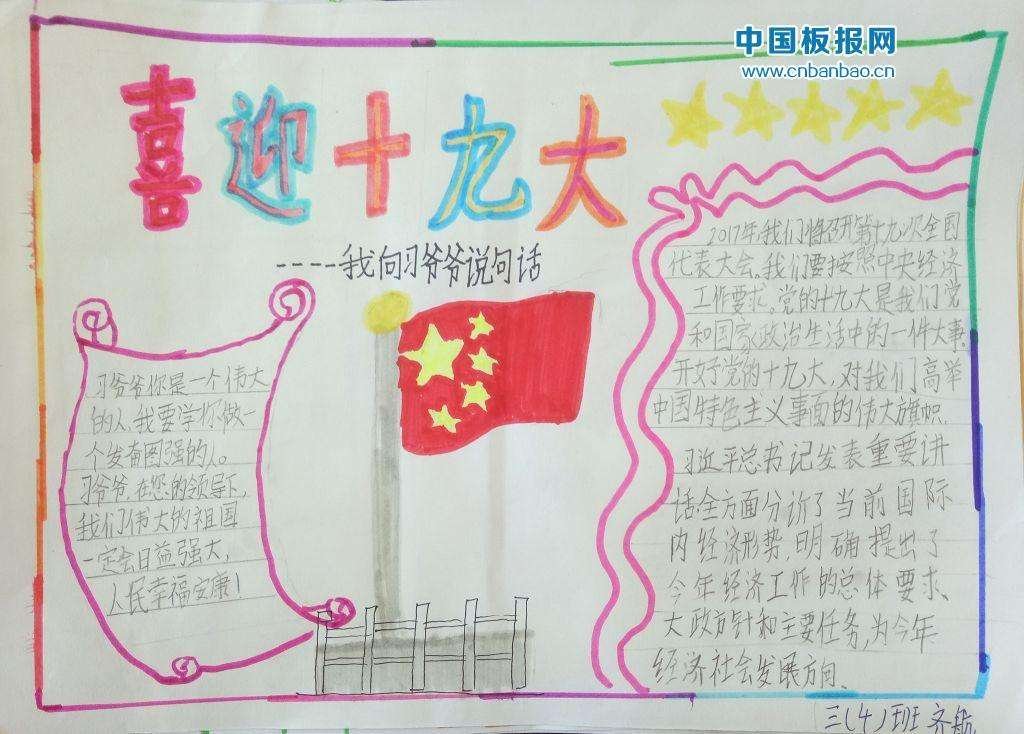 中国板报网
www.cnbanbao.cn
喜迎十九大
----我向习爷爷说句话
习爷爷你是一个伟大
的人,我要学你做一
个发奋图强的人。
习爷爷,在您的领导下,
我们伟大的祖国
一定会日益强大,
人民幸福安康!
2017年我们将召开第十九次全国
代表大会,我们要按照中央经济
工作要求。党的十九大是我们党
和国家政治生活中的一件大事,
开好党的十九大,对我们高举
中国特色主义事面的伟大旗帜.
习近平总书记发表重要讲
话全方面分析了当前国际
内经济形势,明确提出了
今年经济工作的总体要求、
大政方针和主要任务,为今年
经济社会发展方向、
三(4)班 齐航